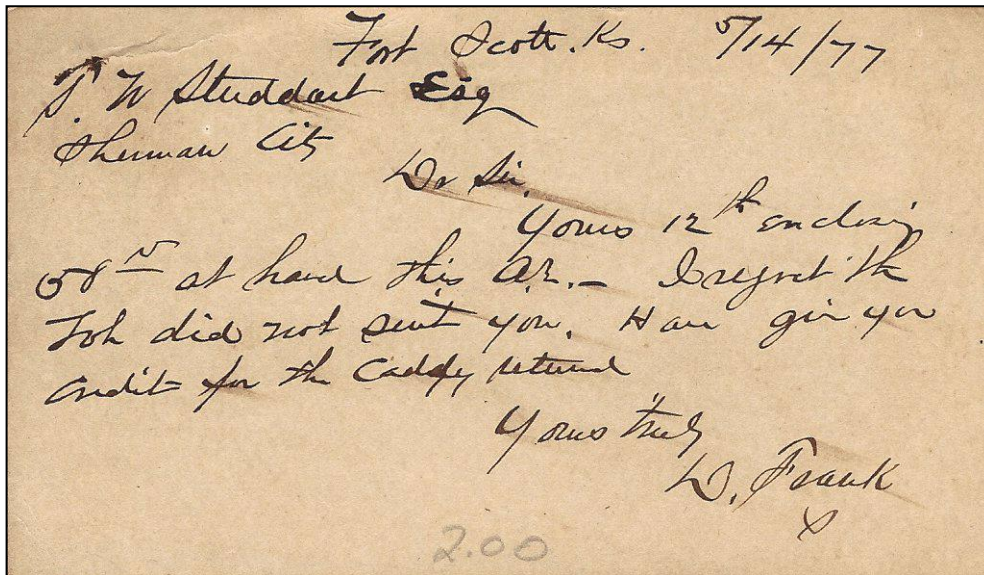 Fort Scott. Ks. 5/14/77
T. W Studdart Esq
Sherman City
Dr Sir.
Yours 12th enclosing
at hand this A.M.– I regret the
Tob did not suit you. Have give you
credit for the Caddy returned
Yours truly
D. Frank
2.00